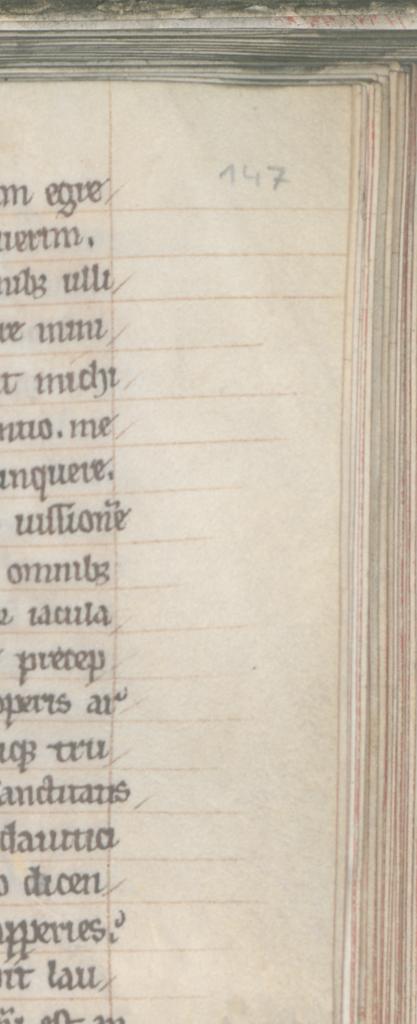 147
m egre/
uerim.
nibꝫ ulli/
re mini/
t michi/
nuo. me/
inquere.
uissionē
omnibꝫ
iacula
precep
operis ar
iqꝫ tru
sanctitatis/
dauitici
o dicen/
apperies.
it lau/
est in